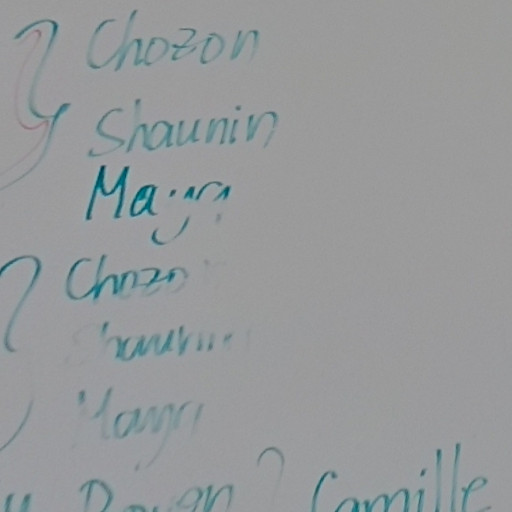 Chozon
Shaunin
Mayra
Chozo
Shaunin
Mayra
? Camille